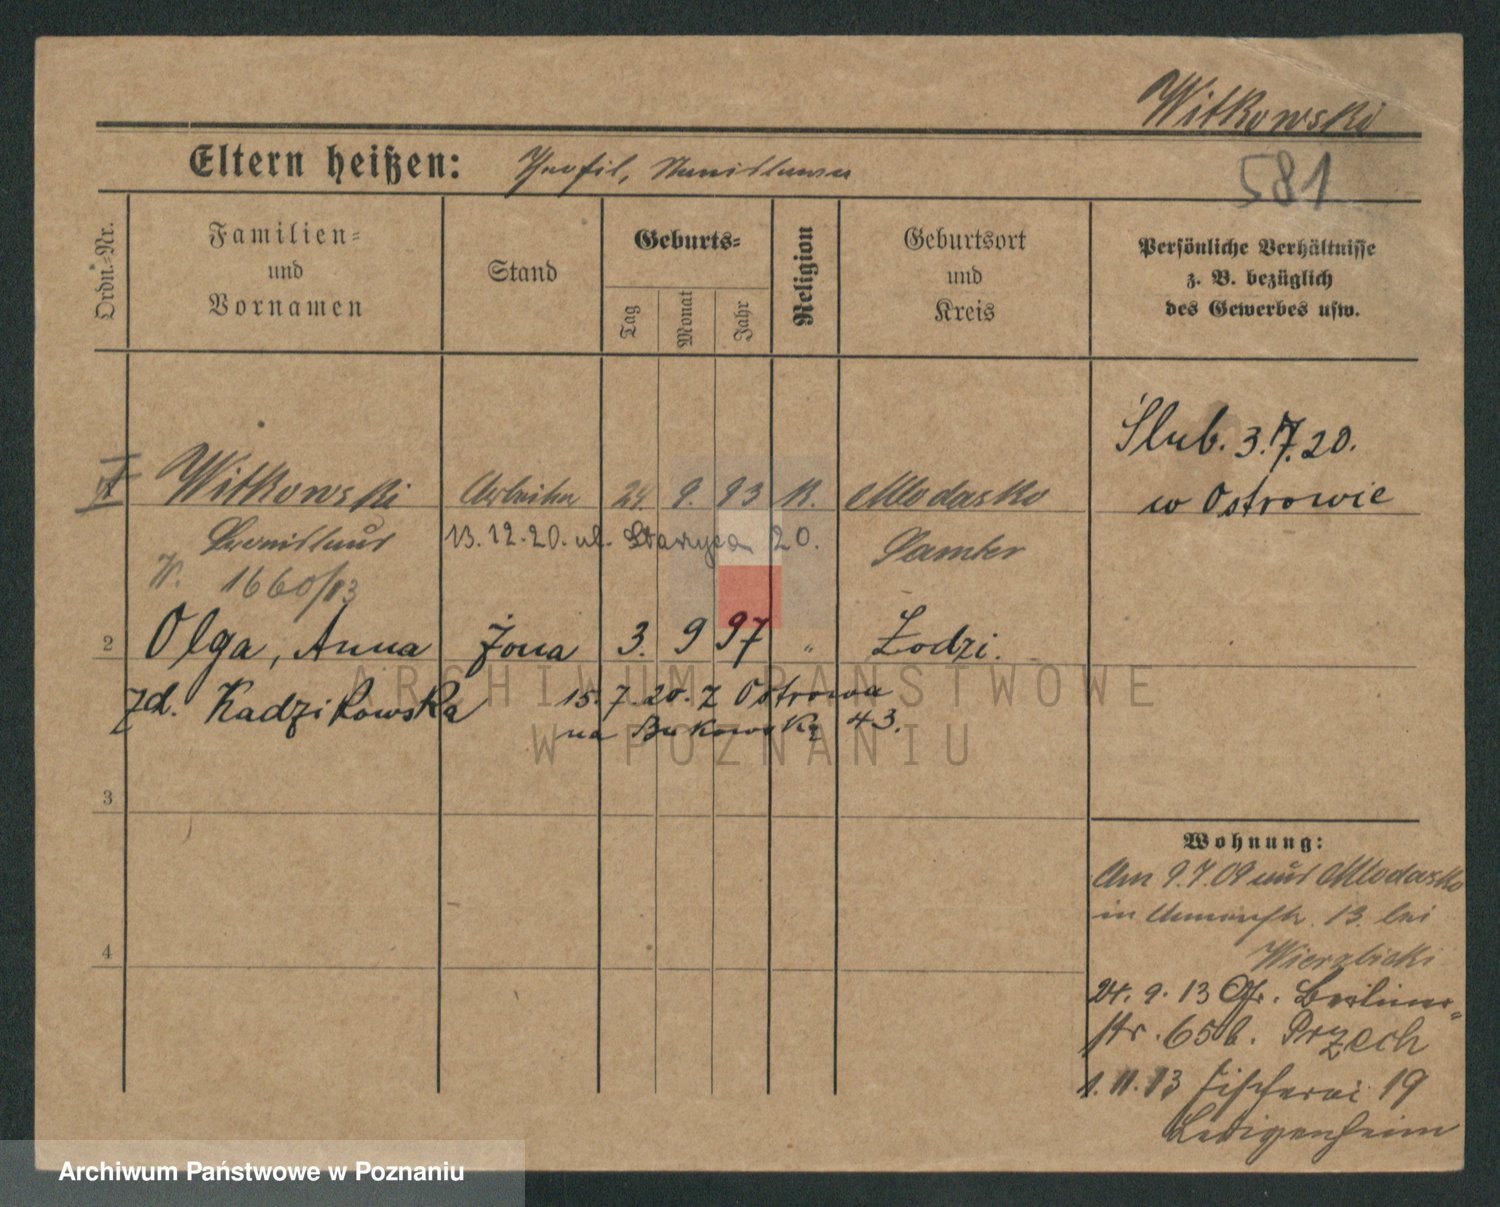 Witkowski
Eltern heißen: Stanislawa
581
Ordn.-Nr.
Familien-
und
Vornamen
Stand
Geburts-
Tag
Monat
Jahr
Religion
Geburtsort
und
Kreis
Persönliche Verhältnisse
z. B. bezüglich
des Gewerbes usw.
Ślub. 3.7.20.
w Ostrowie
1 Witkowski Arbeiter 24. 9. 93 K. Mlodasko
13.12.20. ul. 20. Samter
1660/13
2 Olga, Anna żona 3. 9 97 " Łodzi.
zd. Kadzikowska 15.7.20. z Ostrowa
na Bukowską 43.
3
4
Wohnung:
Am 9.7.09 aus Mlodasko
in 13. bei
Wierzbicki
24. 9. 13 Gr. Berliner-
str. 65 b. Przech
1. 11. 13 Fischerei 19
Ledigenheim
ARCHIWUM PAŃSTWOWE
W POZNANIU
Archiwum Państwowe w Poznaniu